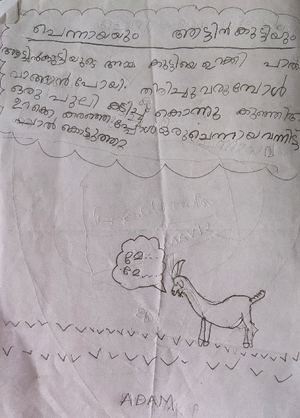 ചെന്നായയും ആട്ടിൻ കുട്ടിയും
ആട്ടിൻകുട്ടിയുടെ അമ്മ കുട്ടിയെ ഉറക്കി പാൽ
വാങ്ങാൻ പോയി. തിരിച്ചു വരുമ്പോൾ
ഒരു പുലി കടിച്ച് കൊന്നു കുഞ്ഞിൻ
ഒരു ചെന്നായ വന്നിട്ട്
പാൽ കൊടുത്തു
മേ...
മേ...
ADAM